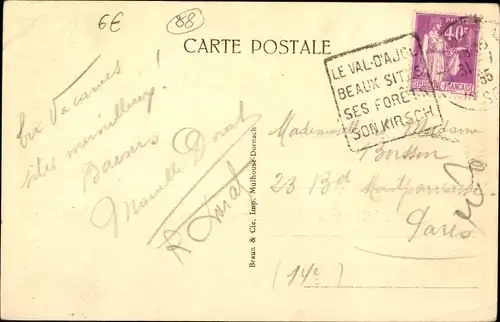 6€
88
CARTE POSTALE
POSTES
40c
RÉPUBLIQUE FRANÇAISE
LE VAL-D'AJOL
BEAUX SITES
SES FORÊTS
SON KIRSCH
Vacances
sites merveilleux !
Baisers
Dorat
Mademoiselle et Madame
Boisson
23 Bd Montparnasse
Paris
(14e)
Braun & Cie, Imp. Mulhouse-Dornach